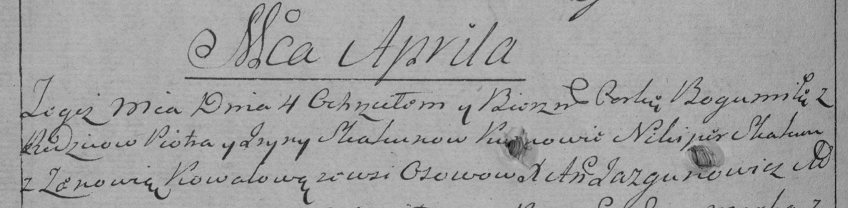 Mca Aprila
Tegoż Mca Dnia 4 Ochrzciłem y Bierzm Corkę Bogumiłę z
Rodzicow Piotra y Iryny Skakunow Kumowie Nikiper Skakun
z Zenowią Kowalową zewsi Osowow X An Jazgunowicz AD